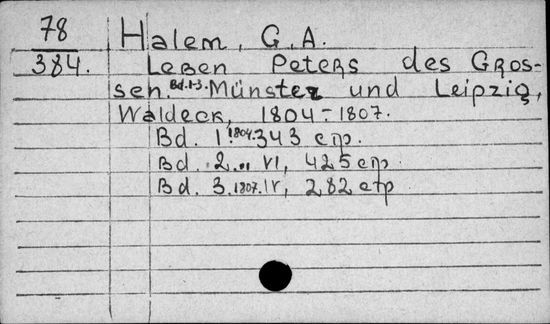 78
384.
Halem, G. A.
Leben Peters des Gros-
sen. Bd. 1-3. Münster und Leipzig,
Waldeck, 1804-1807.
Bd. 1. 1804. 343 стр.
Bd. 2. „ VI, 425 стр.
Bd. 3. 1807. IV, 282 стр